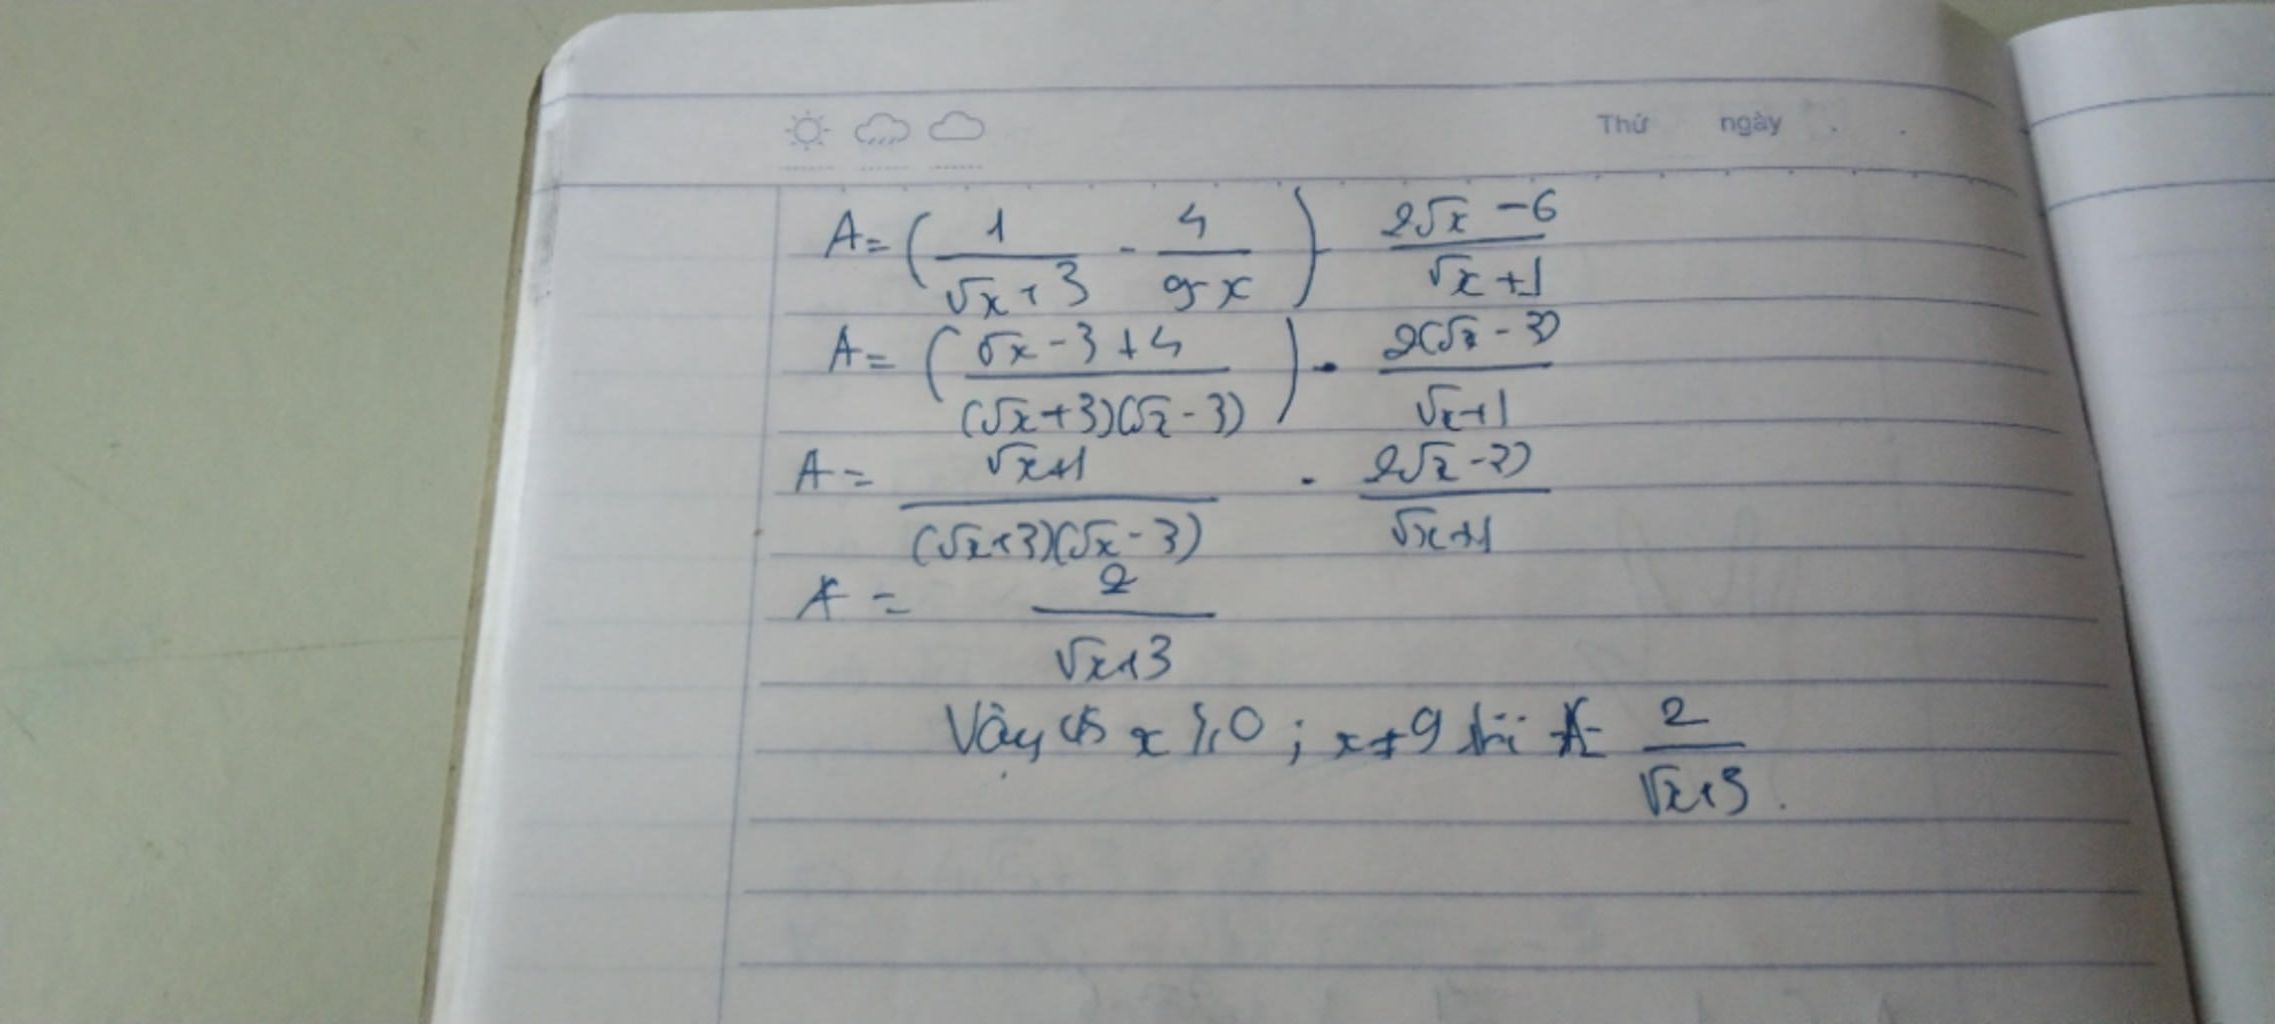 Thứ ngày
A = ( 1/(√x + 3) - 4/(9-x) ) · (2√x - 6)/(√x + 1)
A = ( (√x - 3 + 4)/((√x + 3)(√x - 3)) ) · 2(√x - 3)/(√x + 1)
A = (√x + 1)/((√x + 3)(√x - 3)) · 2(√x - 3)/(√x + 1)
A = 2/(√x + 3)
Vậy x ≥ 0 ; x ≠ 9 thì A = 2/(√x + 3) .